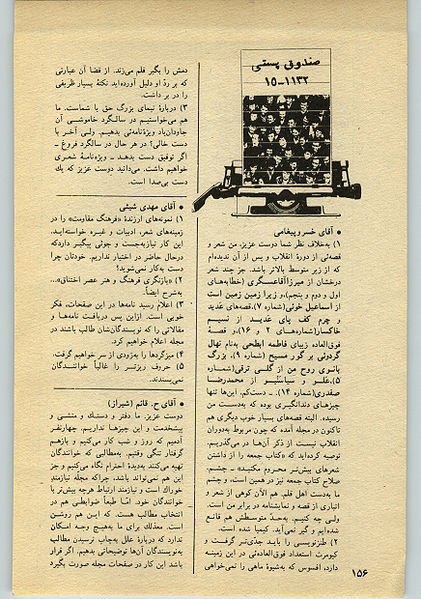 صندوق پستی
۱۵-۱۱۳۲
● آقای خسرو پیغامی
۱) به‌خلاف نظر شما دوست عزیز، من شعر و
قصه‌ئی از دورهٔ انقلاب و پس از آن ندیده‌ام
که از زیر متوسط بالاتر باشد. جز چند شعر
درخشان از میرزاآقاعسگری (خطابه‌های
اول و دوم و پنجم)، و زیرا زمین زمین است
از اسماعیل خوئی (شماره ۷)، قصه‌های غدید
و چرم کف پای غدید از نسیم
خاکسار (شماره‌های ۲ و ۱۶)، و قصهٔ
فوق‌العاده زیبای فاطمه ابطحی به‌نام نهال
گردوئی بر گور مسیح (شماره ۹)، بزرگ
بانوی روح من از گلی ترقی (شماره
۵)، علو و سیاسنبو از محمدرضا
صفدری (شماره ۱۴)... دست‌کم، این‌ها تنها
چیزهای دندانگیری بوده که به‌دست من
رسیده. البته قصه‌های بسیار خوب دیگری هم
تاکنون در مجله آمده که چون مربوط به‌دوران
انقلاب نیست از ذکر آن‌ها در می‌گذریم.
توصیه کرده‌اید که «کتاب جمعه را از داشتن
شعرهای بیش‌تر محروم مکنید» ـ چشم.
صلاح کتاب جمعه نیز در همین است، و چشم
ما به‌دست اهل قلم. هم الآن کوهی از شعر و
انباری از قصه و نمایشنامه در برابر من است.
ولی چه کنیم، به‌حد متوسطش هم قانع
شده‌ایم و گیر نمی‌آید. کیمیا شده است.
۲) طنزنویسی را باید جدی‌تر گرفت و
کیومرث استعداد فوق‌العاده‌ئی در این زمینه
دارد، افسوس که به‌شیوهٔ ماهی را نمی‌خواهی
دمش را بگیر قلم می‌زند. از قضا آن عبارتی
که بر ردّ او دلیل آورده‌اید نکتهٔ بسیار ظریفی
را در بر داشت.
۳) دربارهٔ نیمای بزرگ حق با شماست. ما
هم می‌خواستیم در سالگرد خاموشی آن
جاودان‌یاد ویژه‌نامه‌ئی بدهیم. ولی آخر با
دست خالی؟ در هر حال در سالگرد فروغ ـ
اگر توفیق دست بدهد ـ ویژه‌نامهٔ شعری
خواهیم داشت. می‌دانید دوست عزیز که یك
دست بی‌صدا است.
● آقای مهدی شبئی
۱) نمونه‌های ارزندهٔ «فرهنگ مقاومت» را در
زمینه‌های شعر، ادبیات و غیره خواسته‌اید.
این کار نیازبه‌جست و جوئی پیگیر دارد که
درحال حاضر در اختیار نداریم. خودتان چرا
دست به‌کار نمی‌شوید؟
۲) «بازنگری فرهنگ و هنر عصر اختناق»...
به‌شرح ایضاً.
۳) اعلام رسید نامه‌ها در این صفحات، فکر
خوبی است. ازاین پس دریافت نامه‌ها و
مقالاتی را که نویسندگان‌شان طالب باشند در
مجله اعلام خواهیم کرد.
۴) میزگردها را به‌زودی از سر خواهیم گرفت.
۵) حروف ریزتر را غالباً خوانندگان
نمی‌پسندند.
● آقای ح. قائم (شیراز)
دوست عزیز. ما دفتر و دستك و منشی و
پیشخدمت و این چیزها نداریم. چهارنفر
آدمیم که روز و شب کار می‌کنیم و بازهم
گرفتار تنگی وقتیم. به‌مطالبی که خوانندگان
تهیه می‌کنند به‌دیدهٔ احترام نگاه می‌کنیم و جز
این هم نمی‌تواند باشد، چراکه مجله نیازمند
خوراك است و نیازمند ارتباط هرچه بیش‌تر با
خوانندگان خود. امّا طبعاً ضوابطی هم در
انتخاب مطالب هست، که این هم روشن
است. معذلك برای ما به‌هیچ وجه امکان
ندارد که دربارهٔ علل به‌چاپ نرسیدن مطالب
به‌نویسندگان آن‌ها توضیحاتی بدهیم. اگر قرار
باشد این کار در صفحات مجله صورت بگیرد
۱۵۶